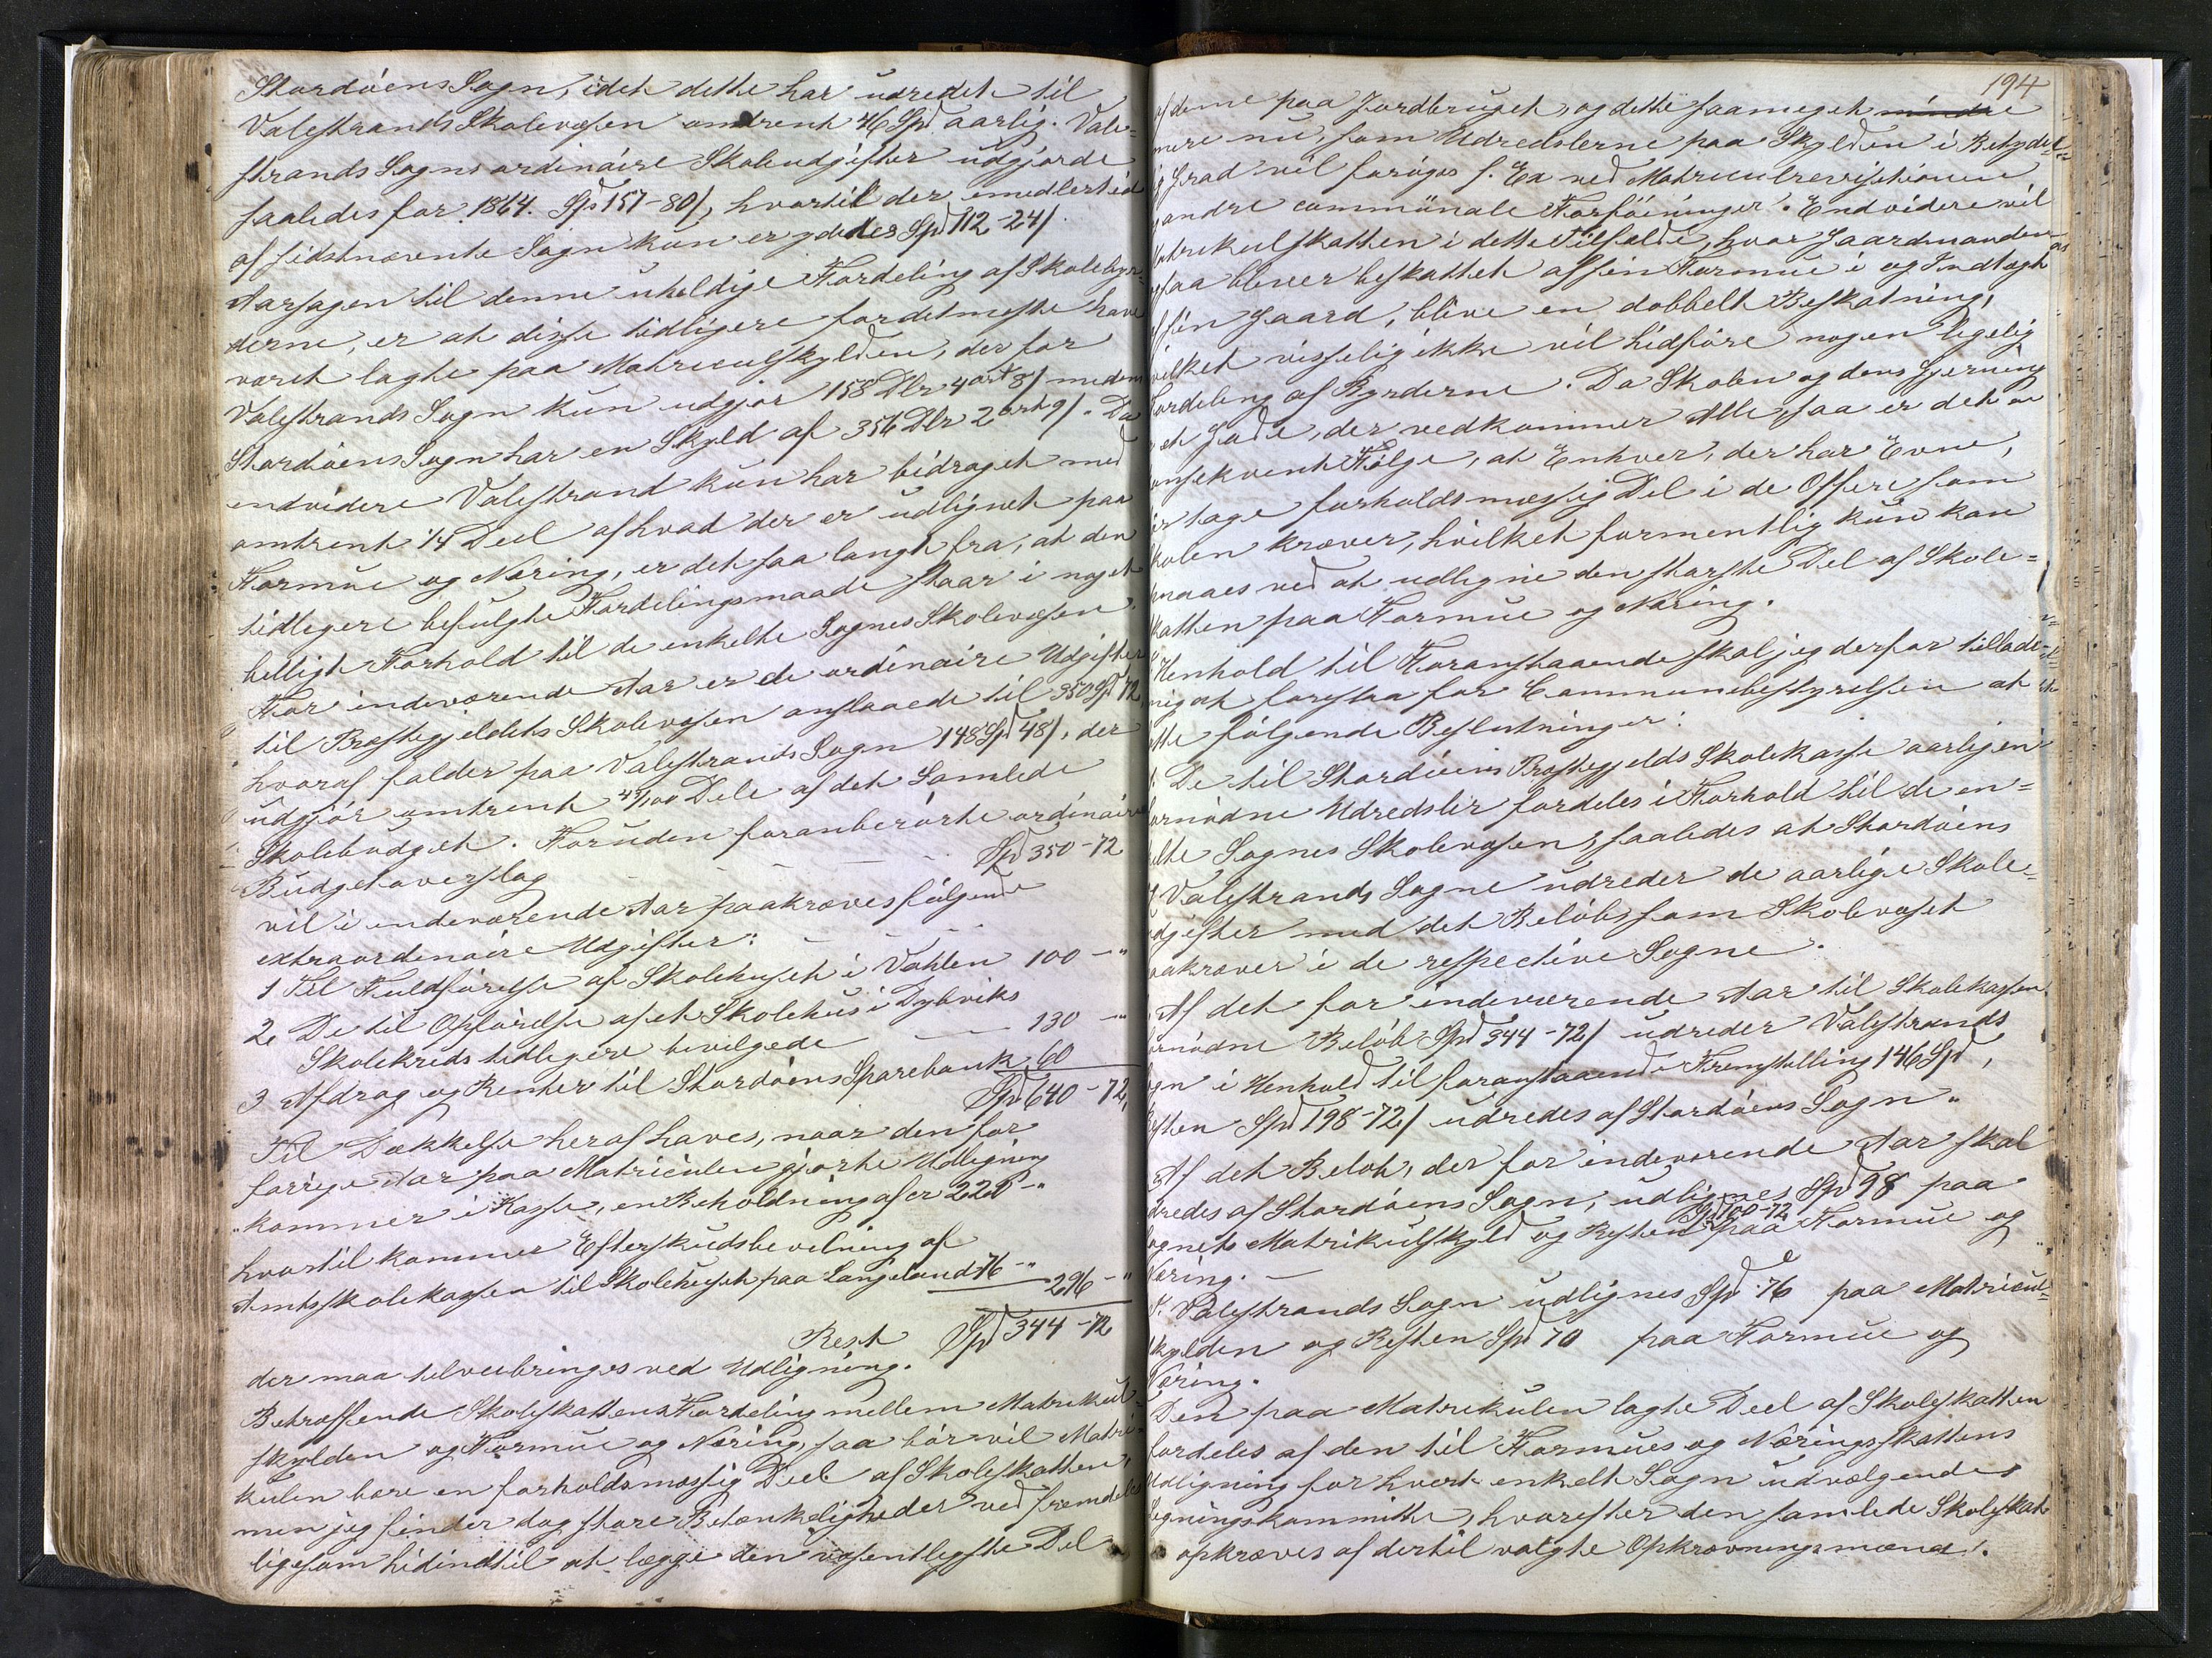 Stordöens Sogn, idet dette har udredet til
Valestrands Skolevæsen omtrent 46 Spd aarlig. Vale-
strands Sogns ordinaire Skoleudgifter udgjorde
saaledes for 1864. Spd 157-80/, hvortil der imidlertid
af sidstnævnte Sogn kun ergededes Spd 112-24/.
Aarsagen til denne uheldige Fordeling af Skolebyr-
derne, er at disse tidligere fordetmeste have
været lagte paa Matriculskylden, der for
Valestrands Sogn kun udgjör 158 Dlr 4 ort 8/ medens
Stordöens Sogn har en Skyld af 356 Dlr 2 ort 9/. Da
endvidere Valestrand kun har bidraget med
omtrent 1/4 Deel af hvad der er udlignet paa
Formue og Næring, er det saa langt fra, at den
tidligere befulgte Fordelingsmaade staar i noget
billigt Forhold til de enkelte Sognes Skolevæsen.
For indeværende Aar er de ordinaire Udgifter
til Præstegjeldets Skolevæsen anslaaede til 350 Spd 72,
hvoraf falder paa Valestrands Sogn 148 Spd 48/, der
udgjör omtrent 43/100 Dele af det Samlede
Skolebudget. Foruden foranberörte ordinaire
Budgetoverslag — — — Spd 350-72
vil i indeværende Aar paakræves fölgende
extraordinaire Udgifter: — — —
1 Til Fuldförelse af Skolehuset i Vahlen 100 - "
2, De til Opförelse af et Skolehus i Dybviks
Skolekreds tidligere bevilgede — — 130 - "
3 Afdrag og Renter til Stordöens Sparebank 60
Spd 640-72,
Til Dækkelse heraf haves, naar den for
forrige Aar paa Matriculen gjorte Udligning
kommer i Kasse, en Beholdning af cr 220 - "
hvortil kommer Efterskudsbevilning af
Amtsskolekassen til Skolehuset paa Langeland 76 - " 296 - "
Rest Spd 344-72
der maa tilveiebringes ved Udligning.
Betræffende Skoleskattens Fordeling mellem Matrikul-
skylden og Formue og Næring, saa bör vel Matri-
kulen bære en forholdsmæssig Deel af Skoleskatten,
men jeg finder dog store Betænkeligheder ved fremdeles
ligesom hidindtil at lægge den væsentligste Del
194
af denne paa Jordbruget, og dette saameget mindre
mere nu, som Udredslerne paa Skylden i Betyde-
lig Grad vil foröges f. Ex ved Matriculrevisionen
og andre communale Forföininger. Endvidere vil
Matrikulskatten i dette Tilfælde, hvor Gaardmanden
ogsaa bliver beskattet af sin Formue i og Indtægt
af sin Gaard, blive en dobbelt Beskatning,
hvilket visselig ikke vil hidföre nogen ligelig
Fordeling af Byrderne. Da Skolen og dens Gjerning
er et Gode, der vedkommer Alle, saa er det en
konsekvent Fölge, at Enhver, der har Evne,
bör tage forholdsmæssig Del i de Offere som
Skolen kræver, hvilket formentlig kun kan
opnaaes ved at udligne den störste Del af Skole-
skatten paa Formue og Næring.
I Henhold til Foranstaaende skal jeg derfor tillade
mig at foreslaa for Communebestyrelsen at
fatte fölgende Beslutninger:
1. De til Stordöens Præstegjelds Skolekasse aarligen
fornödne Udredsler fordeles i Forhold til de en-
kelte Sognes Skolevæsen, saaledes at Stordöens
og Valestrands Sogne udreder de aarlige Skole-
udgifter med det Belöb, som Skolevæset
paakræver i de respective Sogne.
Af det for indeværende Aar til Skolekassen
fornödne Belöb Spd 344-72/ udreder Valestrands
Sogn i Henhold til foranstaaende Fremstilling 146 Spd,
Resten Spd 198-72/ udredes af Stordöens Sogn.
Af det Belöb, der for indeværende Aar skal
udredes af Stordöens Sogn, udlignes Spd 98 paa
Sognets Matrikulskyld og Resten Spd 100-72 paa Formue og
Næring. —
I Valestrands Sogn udlignes Spd 76 paa Matricul-
skylden og Resten Spd 70 paa Formue og
Næring.
Den paa Matrikulen lagte Deel af Skoleskatten
fordeles af den til Formues og Næringsskattens
Udligning for hvert enkelt Sogn udvælgendes
Ligningskommitte, hvorefter den samlede Skoleskat
opkræves af dertil valgte Opkrævningsmænd.